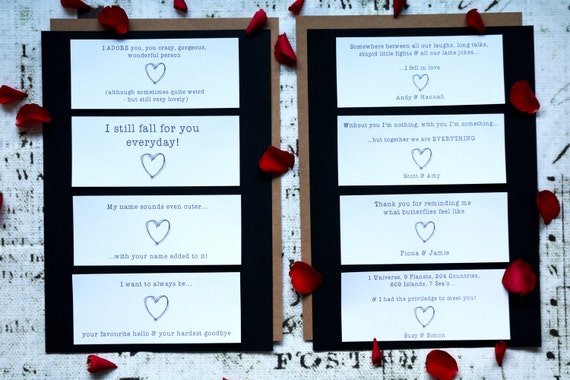 I ADORE you, you crazy, gorgeous,
wonderful person
(although sometimes quite weird
- but still very lovely)
I still fall for you
everyday!
My name sounds even cuter...
...with your name added to it)
I want to always be...
your favourite hello & your hardest goodbye
Somewhere between all our laughs, long talks,
stupid little fights & all our lame jokes...
...I fell in love
Andy & Hannah
Without you I'm nothing, with you I'm something...
...but together we are EVERYTHING
Scott & Amy
Thank you for reminding me
what butterflies feel like
Fiona & Jamie
1 Universe, 9 Planets, 204 Countries,
809 Islands, 7 Sea's...
& I had the priviledge to meet you!
Suzy & Simon